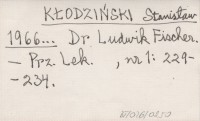 KŁODZIŃSKI Stanisław
1966... Dr. Ludwik Fischer.
- Prz. Lek. , nr 1: 229-
-234.